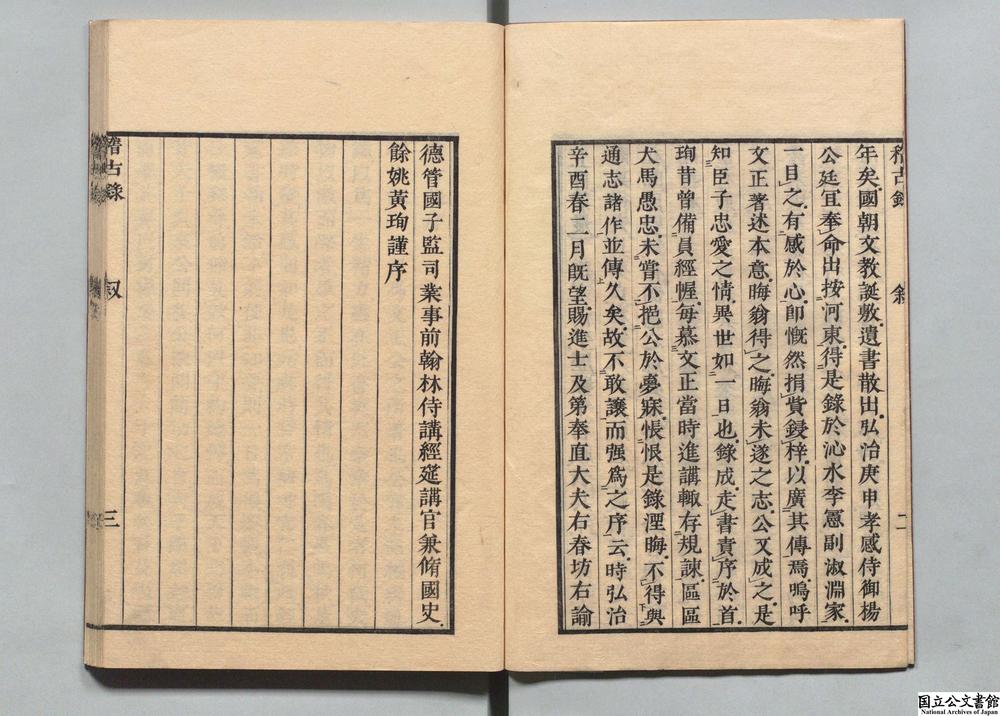 稽古錄 叙 二
年矣國朝文教誕敷遺書散出弘治庚申孝感侍御楊
公廷宜奉命出按河東得是錄於沁水李憲副淑淵家
一目之有感於心卽慨然捐貲鋟梓以廣其傳焉嗚呼
文正著述本意晦翁得之晦翁未遂之志公又成之是
知臣子忠愛之情異世如一日也錄成走書責序於首
珣昔曾備員經幄每慕文正當時進講輙存規諫區區
犬馬愚忠未嘗不挹公於夢寐悵恨是錄湮晦不得與
通志諸作並傳久矣故不敢讓而强爲之序云時弘治
辛酉春二月旣望賜進士及第奉直大夫右春坊右諭
德管國子監司業事前翰林侍講經筵講官兼脩國史
餘姚黃珣謹序
稽古錄 叙 三
国立公文書館
National Archives of Japan